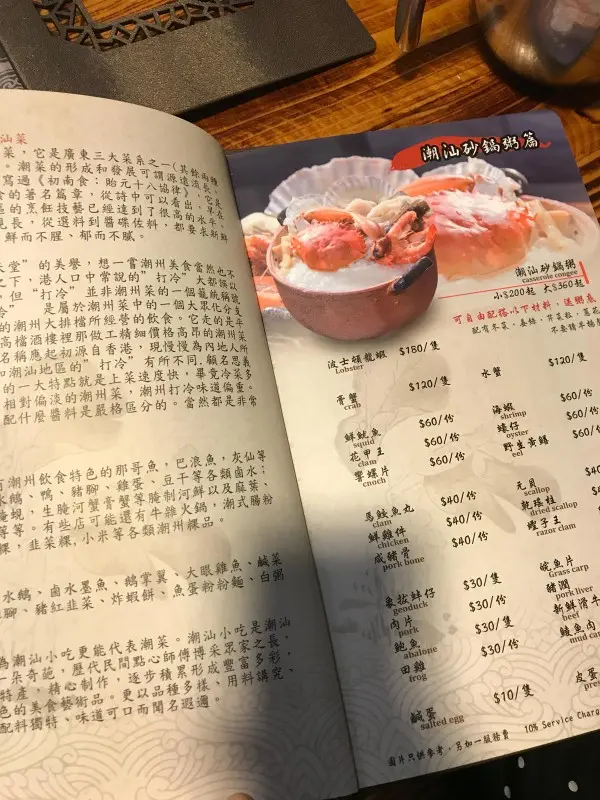 汕菜
菜，它是廣東三大菜系之一(其餘兩種
。潮菜的形成和發展可謂源遠流長。
寫過《初南食：貽元十八協律》，它是
的著名篇章，從詩中可以看出，早在
的烹飪技藝已經達到了很高的水平。
見長，從選料到醬碟佐料，都要求新鮮
鮮而不腥、郁而不膩。
天堂"的美譽，想一嘗潮州美食當然也不
之下，港人口中常說的"打冷"大都誤以
。但"打冷"並非潮州菜的一個籠統稱號
冷"是屬於潮州菜中的一個大眾化分支
的潮州大排檔所經營的飲食。它走的是平
高檔酒樓裡那做工精細價格高昂的潮州菜
名稱應起初源自香港，現慢慢為內地人所
和潮汕地區的"打冷"有所不同.顧名思義
的一大特點就是上菜速度快，畢竟冷菜多
相對偏淡的潮州菜，潮州打冷味道偏重。
配什麼醬料是嚴格區分的。當然都是非常
有潮州飲食特色的那哥魚，巴浪魚，灰仙等
水鵝、鴨、豬腳、雞蛋、豆干等各類鹵水；
醃蜆，生醃河蟹膏蟹等醃制河鮮以及麻葉、
等等。有些店可能還有牛雜火鍋，潮式腸粉
粿，韭菜粿,小米等各類潮州粿品。
水鵝、鹵水墨魚、鵝掌翼、大眼雞魚、鹹菜
腳、豬紅韭菜、炸蝦餅、魚蛋粉粉麵、白粥
為潮汕小吃更能代表潮菜。潮汕小吃是潮汕
一朵奇葩，歷代民間點心師傅博采眾家之長，
特產，精心制作，逐步積累形成豐富多彩，
色的美食藝術品。更以品種多樣、用料講究、
配料獨特、味道可口而聞名遐邇。
潮汕砂鍋粥篇
潮汕砂鍋粥
casserole congee
小$200起 大$360起
可自由配搭以下材料，送粥底
配有冬菜、姜絲、芹菜粒、蔥花
不要請早
波士頓龍蝦 $180/隻
Lobster
水蟹 $120/隻
膏蟹 $120/隻
crab
海蝦 $60/份
shrimp
鮮魷魚 $60/份
squid
蠔仔 $60/份
oyster
花甲王 $60/份
clam
野生黃鱔 $60/
eel
響螺片 $60/份
cnoch
元貝 $40/
scallop
馬鮫魚丸 $40/份
clam
乾瑤柱
dried scallop
鮮雞件 $40/份
chicken
蟶子王
razor clam
咸豬骨 $40/份
pork bone
鯇魚片
Grass carp
象拔蚌仔 $30/隻
geoduck
豬潤
pork liver
肉片 $30/份
pork
新鮮滑牛
beef
鮑魚 $30/隻
abalone
鯪魚肉
mud car
田雞 $30/份
frog
皮蛋
pres
鹹蛋 $10/隻
salted egg
圖片只供參考，另加一服務費 10% Service Charg